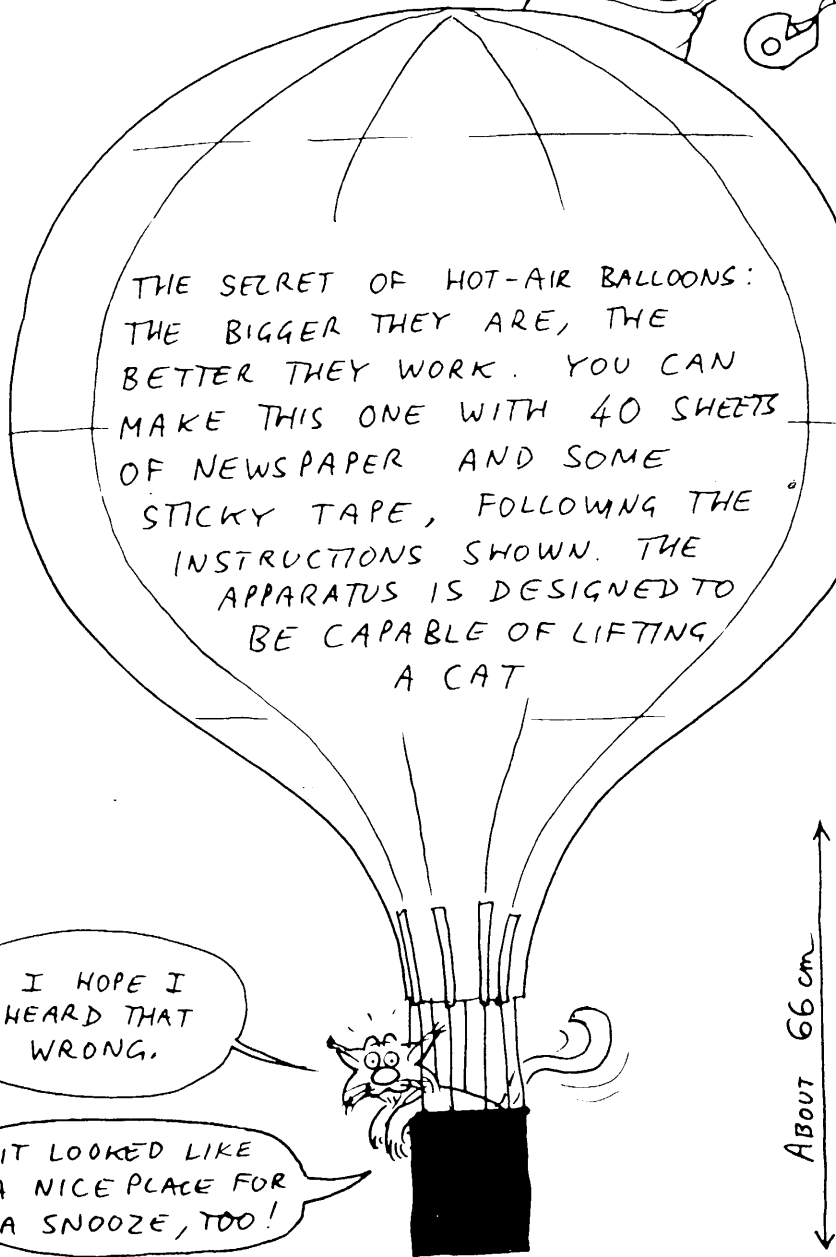 THE SECRET OF HOT-AIR BALLOONS:
THE BIGGER THEY ARE, THE
BETTER THEY WORK. YOU CAN
MAKE THIS ONE WITH 40 SHEETS
OF NEWSPAPER AND SOME
STICKY TAPE, FOLLOWING THE
INSTRUCTIONS SHOWN. THE
APPARATUS IS DESIGNED TO
BE CAPABLE OF LIFTING
A CAT
I HOPE I
HEARD THAT
WRONG.
IT LOOKED LIKE
A NICE PLACE FOR
A SNOOZE, TOO!
ABOUT 66 cm